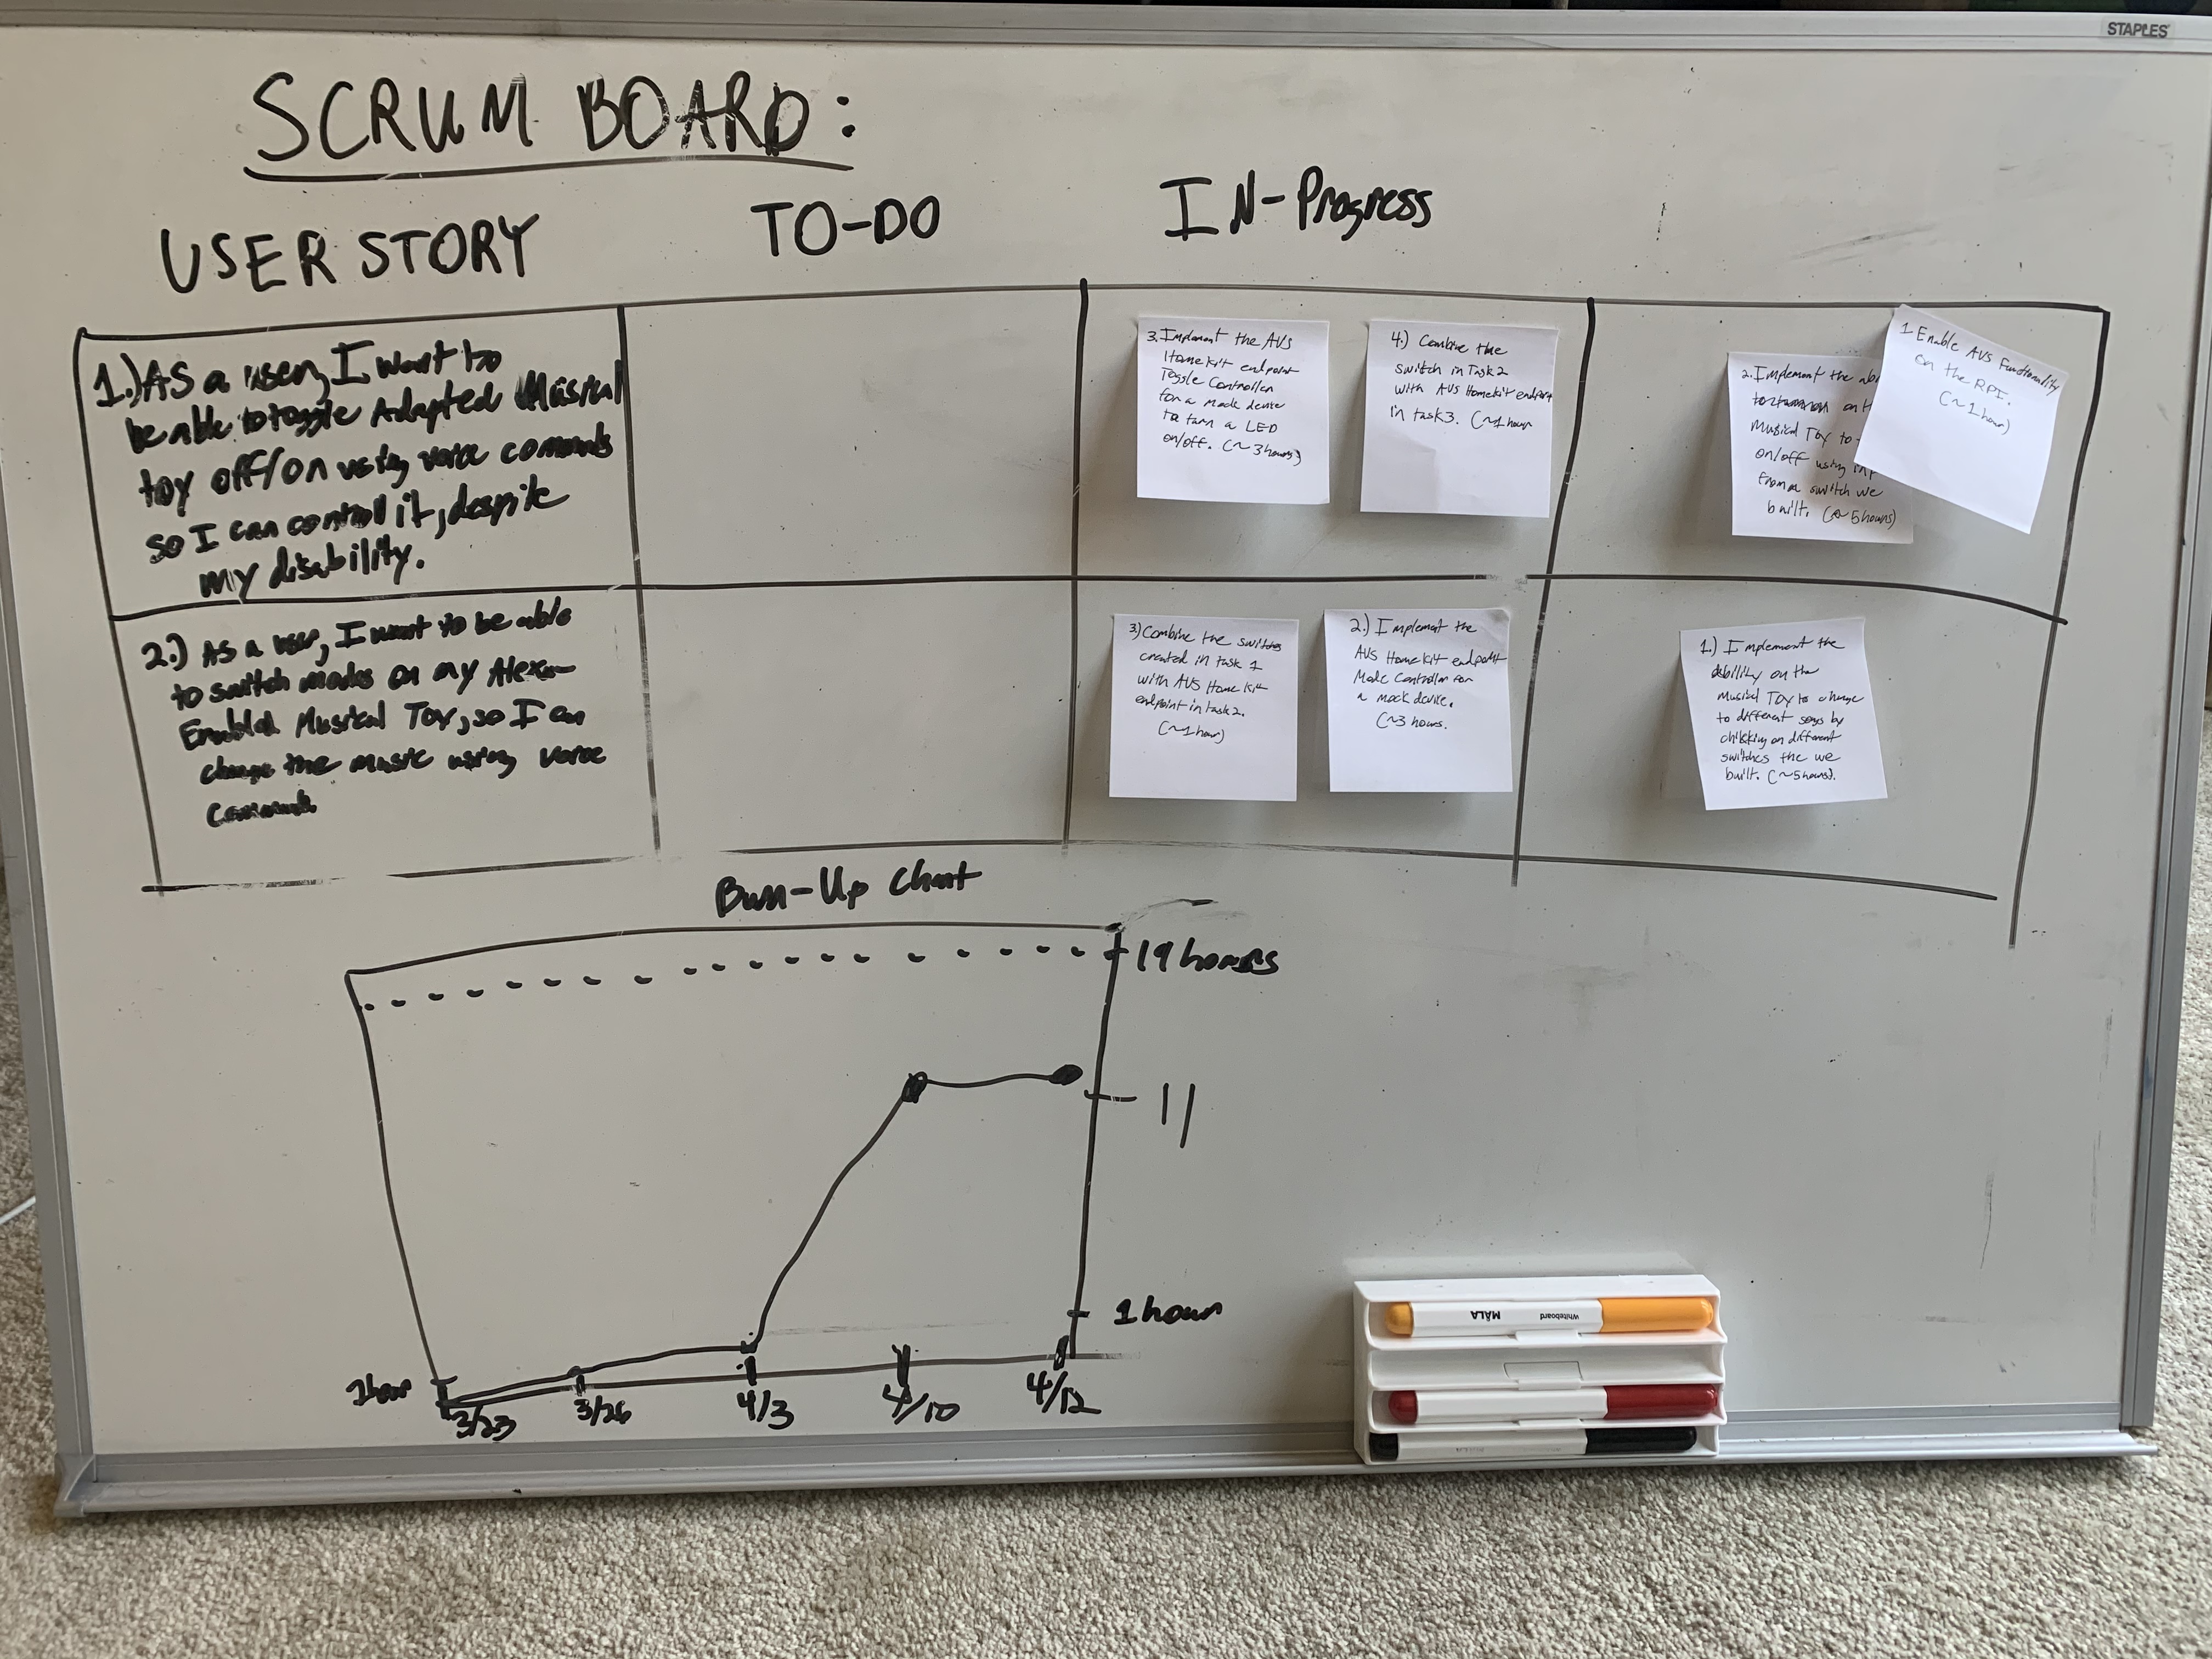 STAPLES
SCRUM BOARD:
USER STORY
TO-DO
IN-Progress
1.) As a user, I want to
be able to toggle Adapted Musical
toy off/on using voice commands
so I can control it, despite
my disability.
3. Implement the AVS
HomeKit endpoint
Toggle Controller
for a mock device
to turn a LED
on/off. (~3hours)
4.) Combine the
switch in Task 2
with AVS HomeKit endpoint
in task 3. (~1 hour
2. Implement the
on
Musical Toy to
on/off using
from a switch we
built. (~5hours)
1 Enable AVS Functionality
on the RPI.
(~1hour)
2.) As a user, I want to be able
to switch modes on my Alexa-
Enabled Musical Toy, so I can
change the music using voice
commands.
3) Combine the switches
created in task 1
with AVS HomeKit
endpoint in task 2.
(~1hour)
2.) Implement the
AVS HomeKit endpoint
Mode Controller for
a mock device.
(~3 hours.
1.) I implement the
ability on the
Musical Toy to change
to different songs by
on different
switches the we
built. (~5hours).
Burn-Up Chart
19 hours
11
1 hour
1 hour
3/23
3/26
4/3
4/10
4/12
MÅLA
Whiteboard
MÅLA